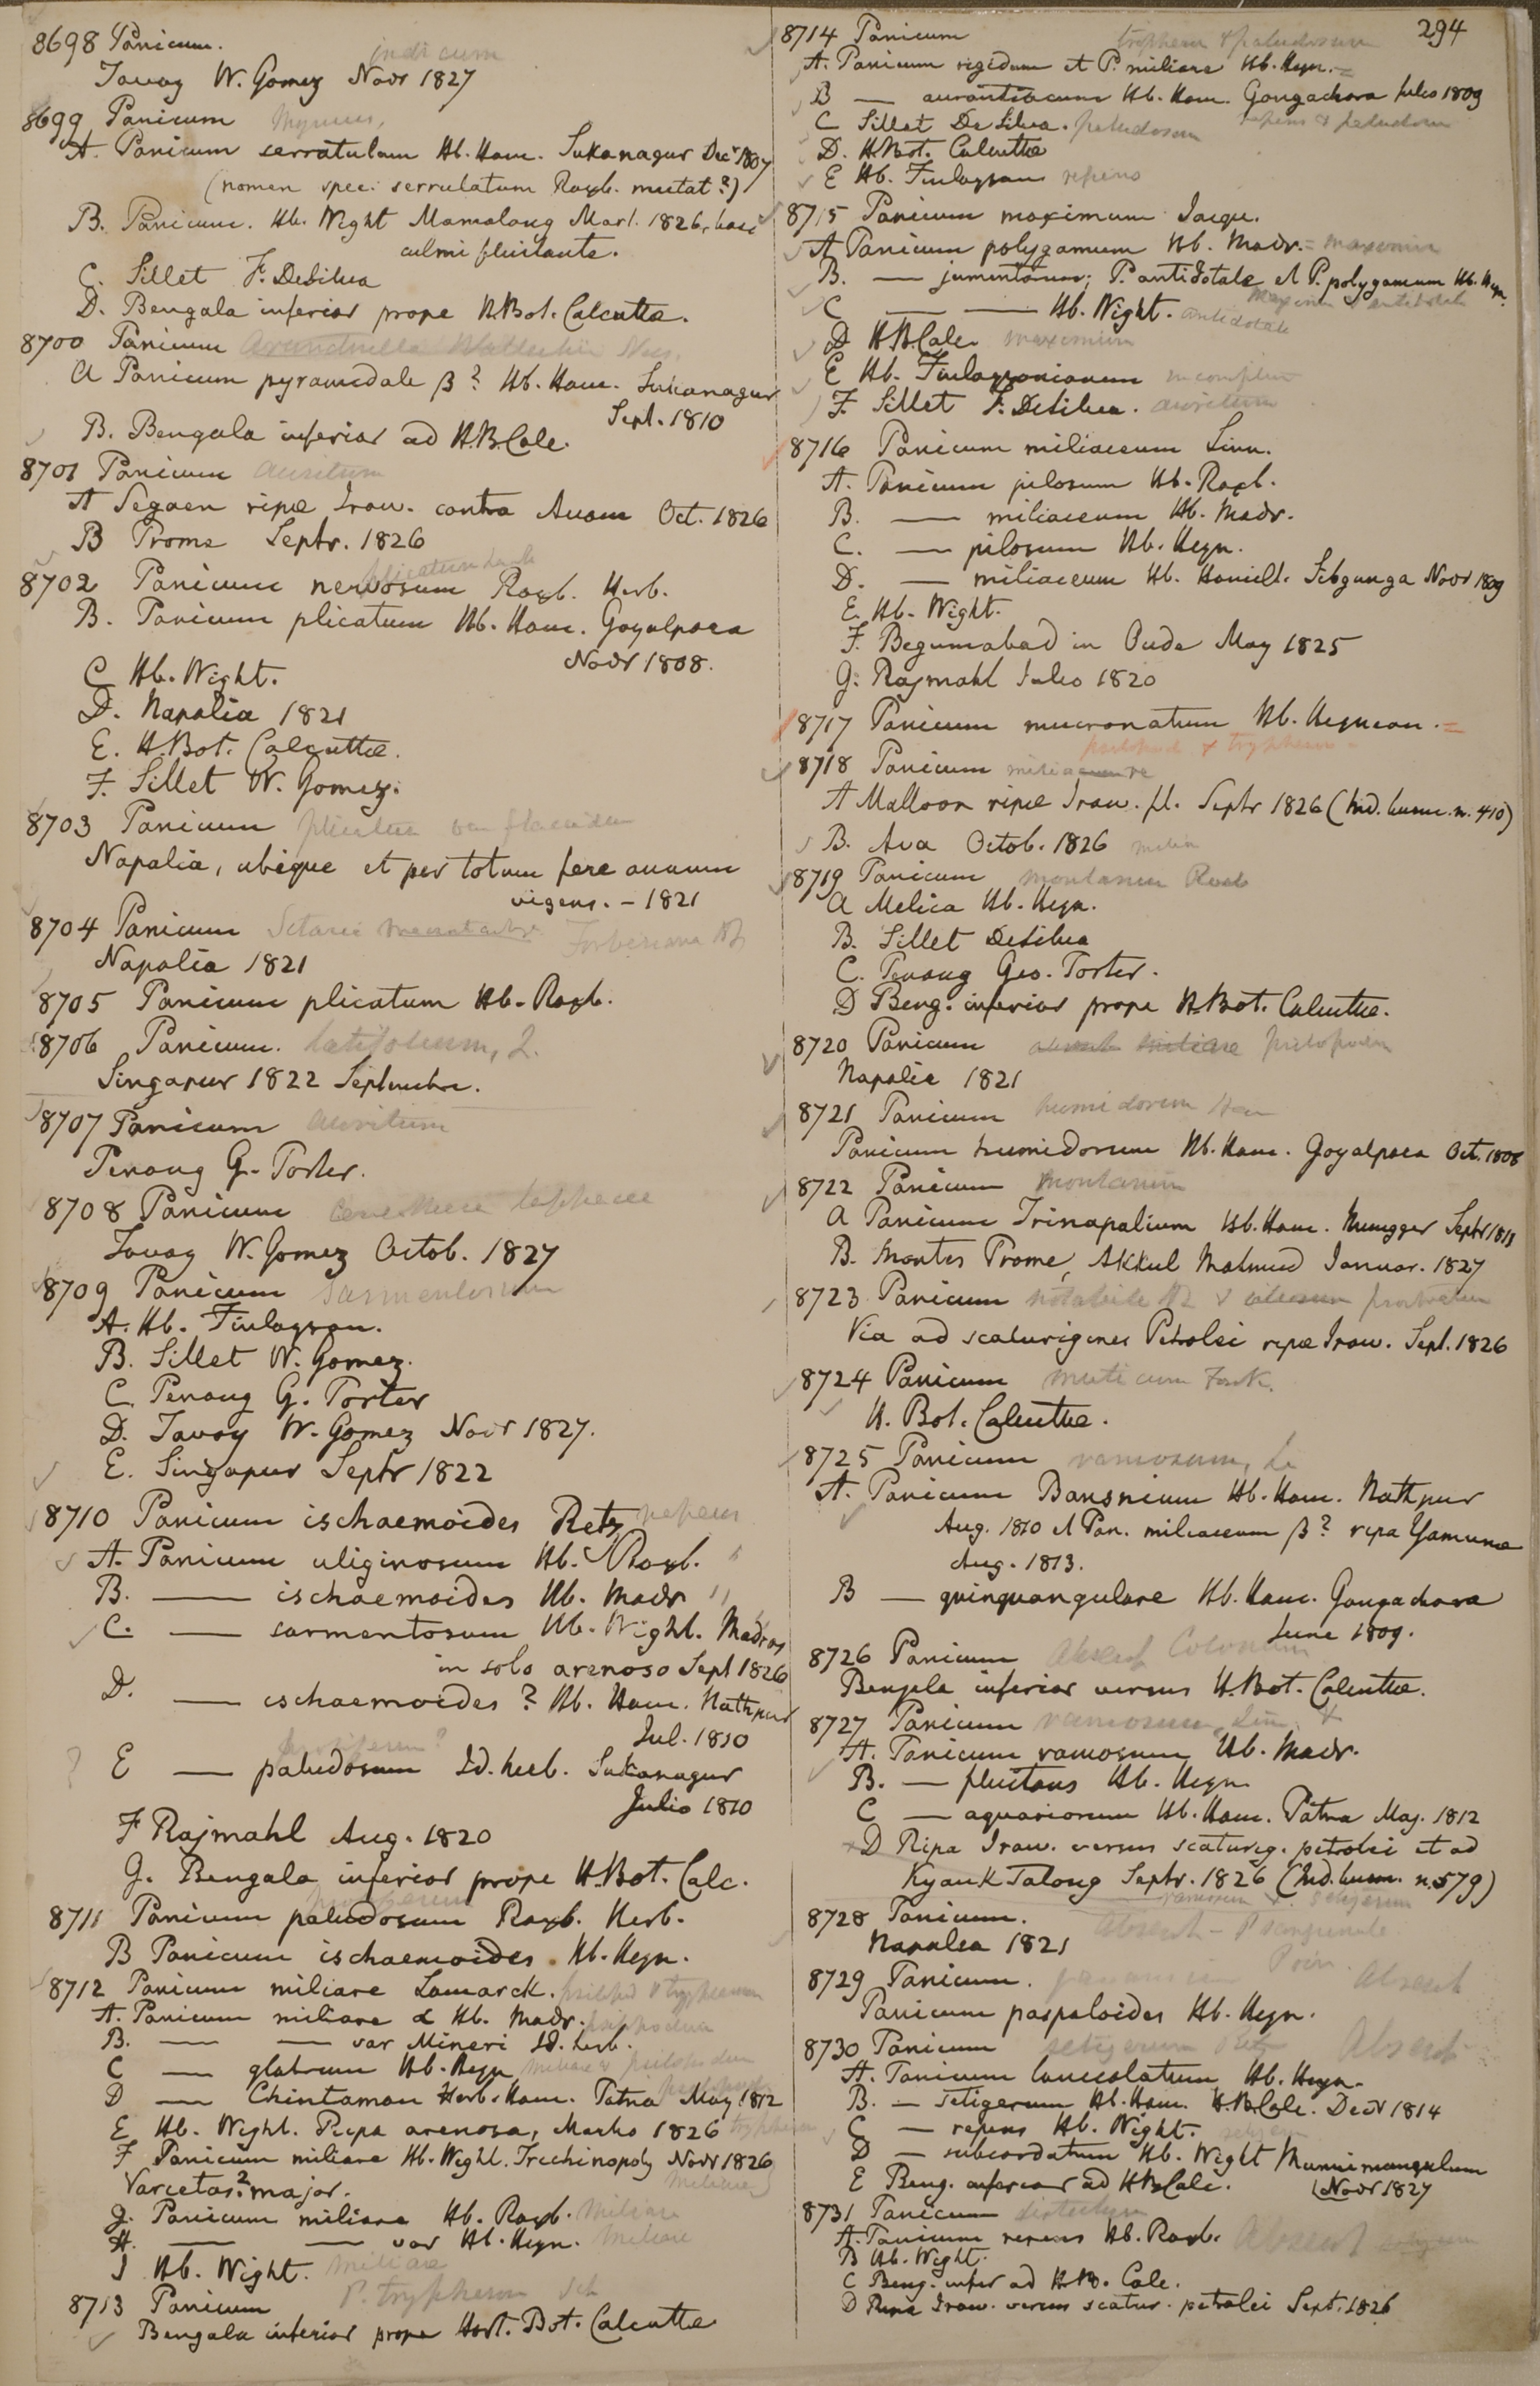 294
8698 Panicum. indicum
Tavoy W. Gomez Novr 1827
8699 Panicum
A. Panicum serratulum Hb. Ham. Sukanagur Decr 1807
(nomen spec: serrulatum Roxb. mutat?)
B. Panicum. Hb. Wight Mamalang Mart. 1826, basi
culmi fluitante.
C. Sillet F. DeSilva
D. Bengala inferior prope H.Bot. Calcutta.
8700 Panicum Arundinella Wallichii Nees.
A Panicum pyramidale β? Hb. Ham. Sukanagur
Sept. 1810
B. Bengala inferior ad H.B.Calc.
8701 Panicum auritum
A Segaen ripæ Iraw. contra Avam Oct. 1826
B Prome Septr. 1826
plicatum Lamk
8702 Panicum nervosum Roxb. Herb.
B. Panicum plicatum Hb. Ham. Goyalpara
Novr 1808.
C Hb. Wight.
D. Napalia 1821
E. H.Bot. Calcuttæ.
F. Sillet W. Gomez.
8703 Panicum
Napalia, ubique et per totum fere annum
vigens. - 1821
8704 Panicum Setaria Forbesiana
Napalia 1821
8705 Panicum plicatum Hb. Roxb.
8706 Panicum. latifolium, L.
Singapur 1822 Septembre.
8707 Panicum auritum
Penang G. Porter.
8708 Panicum
Tavoy W. Gomez Octob. 1827
8709 Panicum sarmentosum
A. Hb. Finlayson.
B. Sillet W. Gomez.
C. Penang G. Porter
D. Tavoy W. Gomez Novr 1827.
E. Singapur Septr 1822
8710 Panicum ischaemoides Retz repens
A. Panicum uliginosum Hb. Roxb. "
B. — ischaemoides Hb. Madr "
C. — sarmentosum Hb. Wight. Madras
in solo arenoso Sept 1826
D. — ischaemoides? Hb. Ham. Nathpur
Jul. 1810
E — paludosum Id. herb. Sukanagur
Julio 1810
F Rajmahl Aug. 1820
G. Bengala inferior prope H.Bot. Calc.
8711 Panicum paludosum Roxb. Herb.
B Panicum ischaemoides Hb. Heyn.
8712 Panicum miliare Lamarck.
A. Panicum miliare α Hb. Madr.
B. — — var Mineri Id. herb.
C — glabrum Hb. Heyn
D — Chintaman Herb. Ham. Patna May. 1812
E Hb. Wight. Ripa arenosa, Martio 1826
F Panicum miliare Hb. Wight. Trichinopoly Novr 1826
Varietas? major.
G. Panicum miliare Hb. Roxb. Miliare
H. — — var Hb. Heyn. Miliare
I Hb. Wight. Miliare
8713 Panicum P. trypheron Sch
Bengala inferior prope Hort. Bot. Calcuttæ
8714 Panicum trypheron & paludosum
A. Panicum rigidum et P. miliare Hb. Heyn. =
B — aurantiacum Hb. Ham. Gongachora Julio 1809
repens & paludosum
C Sillet De Silva. paludosum
D. H.Bot. Calcuttæ
E Hb. Finlayson repens
8715 Panicum maximum Jacqu.
A Panicum polygamum Hb. Madr. = maximum
B. — jumentorum; P. antidotale et P. polygamum Hb. Heyn.
maximum & antidotale
C — — Hb. Wight. antidotale
D H.B.Calc. maximum
E Hb. Finlaysonianum
F. Sillet F. DeSilva. auritum
8716 Panicum miliaceum Linn.
A. Panicum pilosum Hb. Roxb.
B. — miliaceum Hb. Madr.
C. — pilosum Hb. Heyn.
D. — miliaceum Hb. Hamilt. Sibgunga Novr 1809
E. Hb. Wight.
F. Begumabad in Oude May 1825
G. Rajmahl Julio 1820
8717 Panicum mucronatum Hb. Heynean. =
8718 Panicum
A Malloon ripæ Iraw. fl. Septr 1826 (hid. burm. n. 410)
B. Ava Octob. 1826
8719 Panicum montanum Roxb
A Melica Hb. Heyn.
B. Sillet DeSilva
C. Penang Geo. Porter.
D Beng. inferior prope H.Bot. Calcuttæ.
8720 Panicum
Napalia 1821
8721 Panicum humidorum Ham
Panicum humidorum Hb. Ham. Goyalpara Oct. 1808
8722 Panicum montanum
A Panicum Trinapalium Hb. Ham. Mungger Septr 1811
B. Montes Prome, Akkul Mahmud Januar. 1827
8723 Panicum prostratum
Via ad scaturigines Petrolei ripæ Iraw. Sept. 1826
8724 Panicum muticum Forsk.
H. Bot. Calcuttæ.
8725 Panicum ramosum, L.
A. Panicum Bansnium Hb. Ham. Nathpur
Aug. 1810 et Pan. miliaceum β? ripa Yamunæ
Aug. 1813.
B — quinquangulare Hb. Ham. Gongachora
June 1809.
8726 Panicum Absent Colonum
Bengala inferior versus H.Bot. Calcuttæ.
8727 Panicum ramosum, Lin
A. Panicum ramosum Hb. Madr.
B. — fluitans Hb. Heyn
C — aquariorum Hb. Ham. Patna Maj. 1812
D Ripa Iraw. versus scaturig. petrolei et ad
Kyauk Talong Septr. 1826 (hid. burm. n. 579)
8728 Panicum. Absent -
Napalia 1821
8729 Panicum. Absent
Panicum paspaloides Hb. Heyn.
8730 Panicum setigerum Retz Absent
A. Panicum lanceolatum Hb. Heyn.
B. — setigerum Hb. Ham. H.B.Calc. Decr 1814
C — repens Hb. Wight.
D — subcordatum Hb. Wight Munnimungulum
Novr 1827
E Beng. inferior ad H.B.Calc.
8731 Panicum
A. Panicum repens Hb. Roxb. Absent
B Hb. Wight.
C Beng. infer ad H.B. Calc.
D Ripæ Iraw. versus scatur. petrolei Sept. 1826